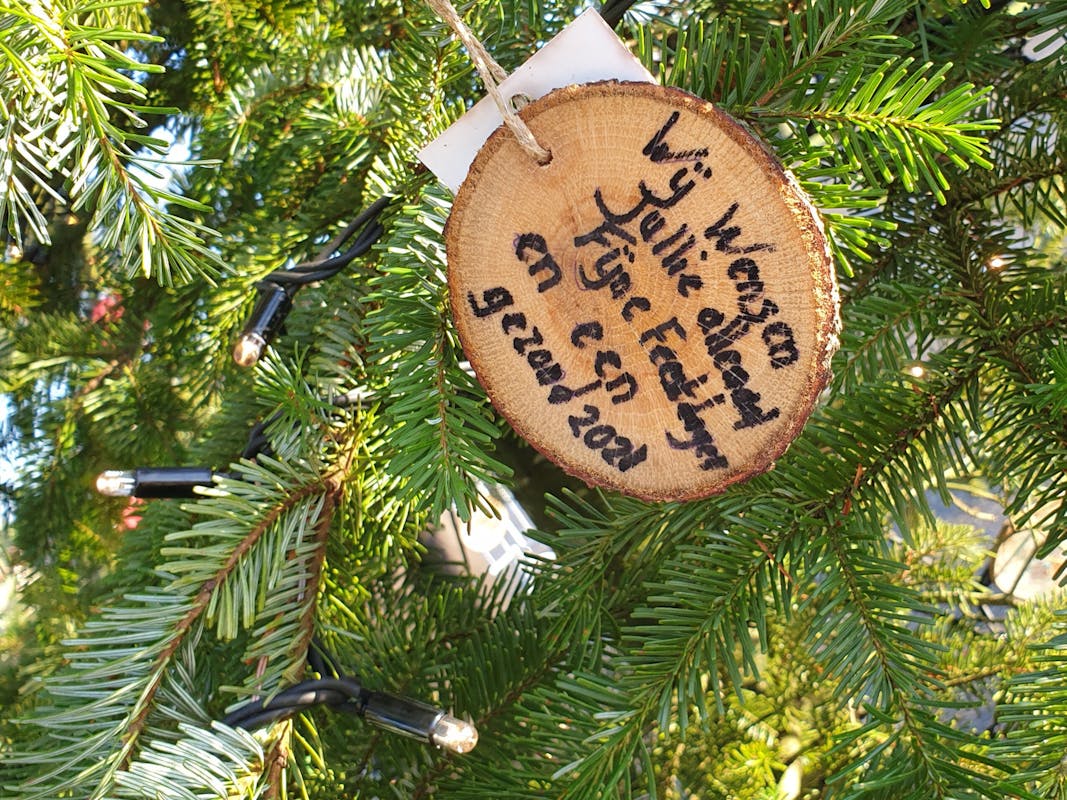 Wij Wensen
Jullie allemaal
Fijne Feestdagen
en een
gezond 2021